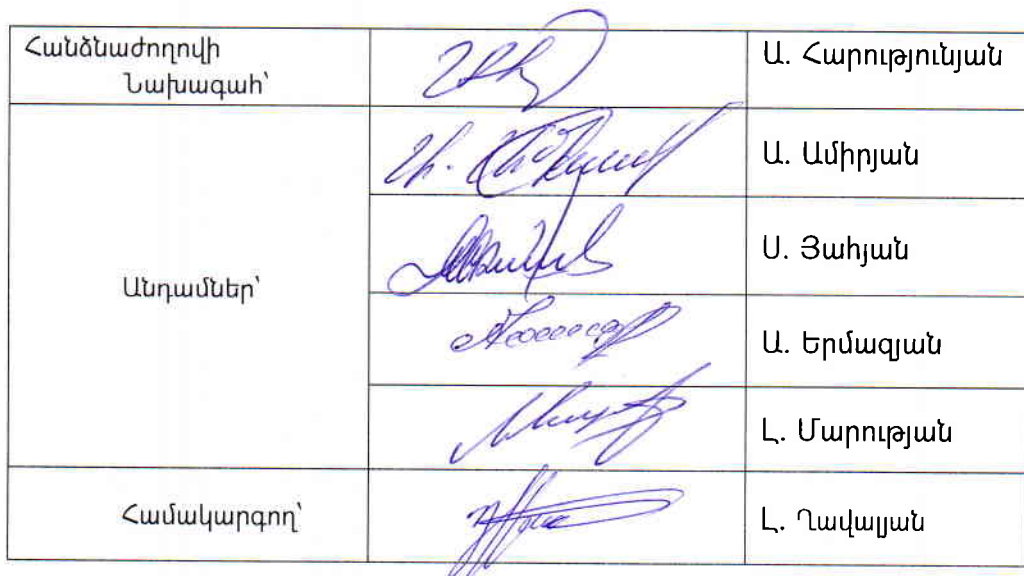 Հանձնաժողովի
Նախագահ՝
Ա. Հարությունյան
Ա. Ամիրյան
Անդամներ՝
Ս. Յահյան
Ա. Երմազյան
Լ. Մարության
Համակարգող՝
Լ. Ղավալյան